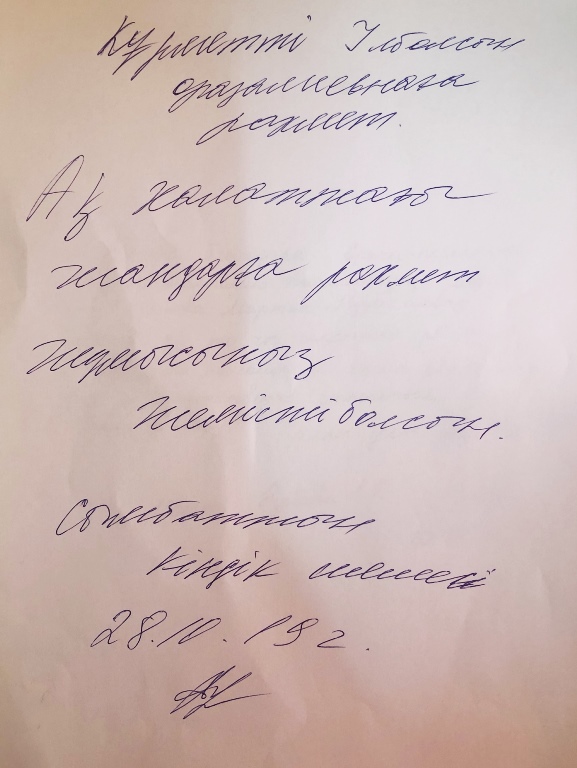 Курметті Улболсын
Оразалиевнаға
рахмет.
Ақ халаттағы
жандарға рахмет
жумысыныз
жемісті болсын.
Сымбаттын
кіндік шешесі
28.10.19 г.